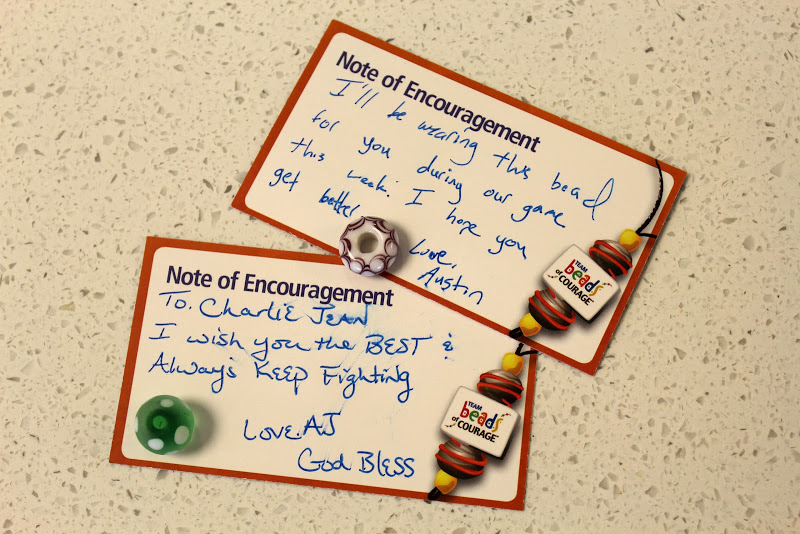 Note of Encouragement
I'll be wearing this bead
for you during our game
this week. I hope you
get better
Love,
Austin
TEAM
beads
of COURAGE
Note of Encouragement
To. Charlie Jean
I wish you the BEST &
Always Keep Fighting
Love. AJ
God Bless
TEAM
beads
of COURAGE